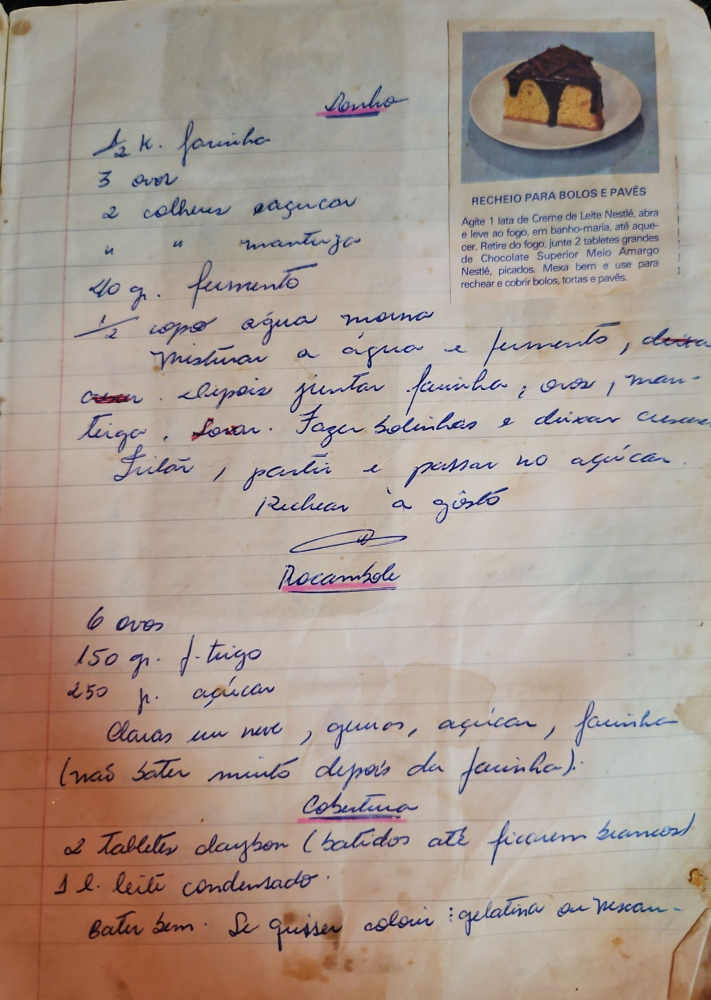 Sonho
1/2 K. farinha
3 ovos
2 colheres açucar
" " manteiga
40 g. fermento
1/2 copo água morna
Misturar a água e fermento, deixa
crescer. Depois juntar farinha, ovos, man-
teiga. Sovar. Fazer bolinhas e deixar crescer
Fritar, partir e passar no açúcar.
Rechear à gôsto
RECHEIO PARA BOLOS E PAVÊS
Agite 1 lata de Creme de Leite Nestlé, abra
e leve ao fogo, em banho-maria, até aque-
cer. Retire do fogo, junte 2 tabletes grandes
de Chocolate Superior Meio Amargo
Nestlé, picados. Mexa bem e use para
rechear e cobrir bolos, tortas e pavês.
Rocambole
6 ovos
150 gr. f. trigo
250 g. açúcar
Claras em neve, gemas, açúcar, farinha
(não bater muito depois da farinha).
Cobertura
2 tabletes claybon (batidos até ficarem brancos)
1 l. leite condensado.
Bater bem. Se quiser colorir: gelatina ou